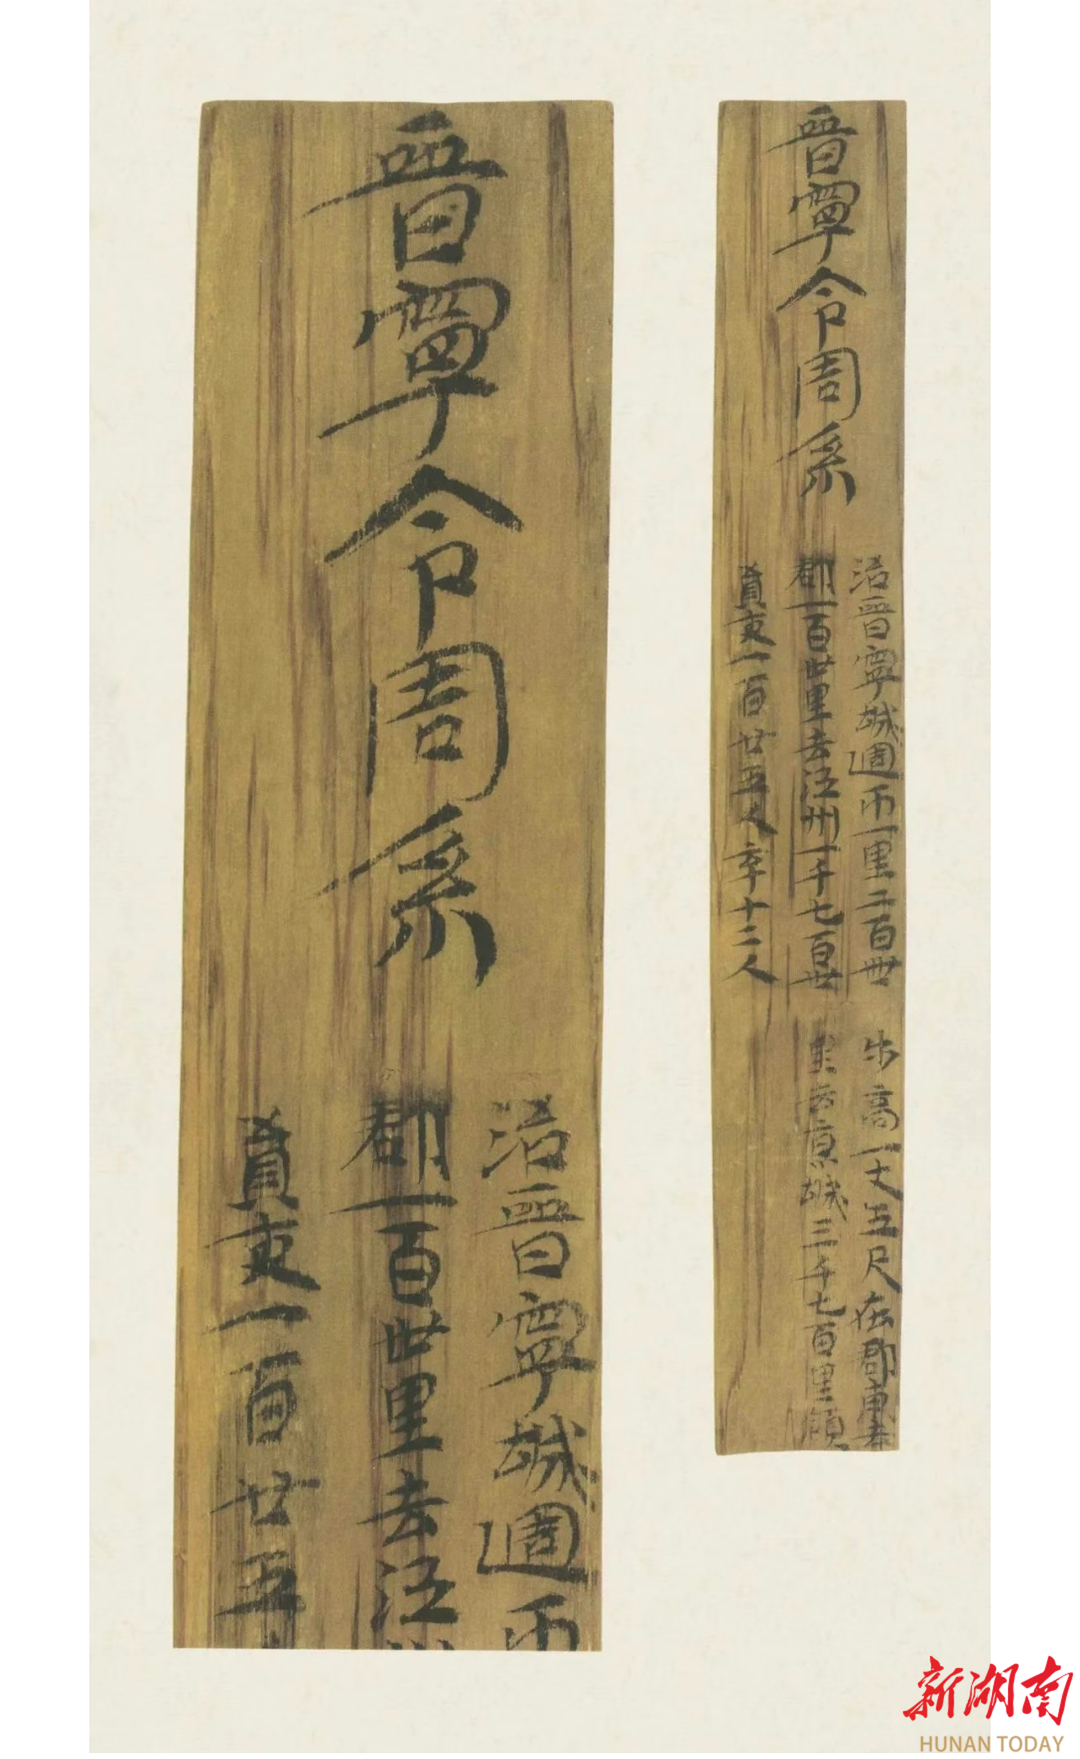 晋寧令周系
治晋寧城週帀
郡一百卅里去江州
員吏一百廿五
晋寧令周系
治晋寧城週帀一里二百卌步高一丈五尺在郡東去
郡一百卅里去江州一千七百卅里去京城三千七百里領
員吏一百廿五人卒十二人
新湖南
HUNAN TODAY